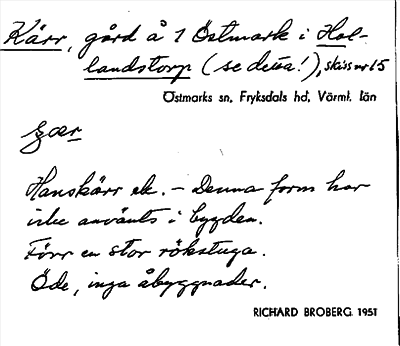 Kärr, gård å 1 Östmark i Hol-
landstorp (se detta!), skiss nr 15
Östmarks sn, Fryksdals hd, Värml. län
Hanskärr ek. – Denna form har
icke använts i bygden.
Förr en stor rökstuga.
Öde, inga åbyggnader.
RICHARD BROBERG 1951